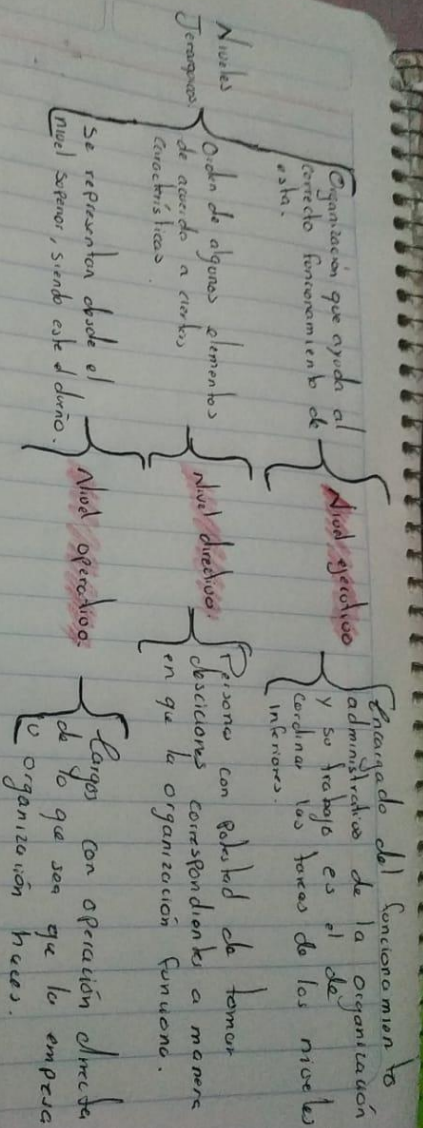 Niveles
Jerarquicos.
Organización que ayuda al
correcto funcionamiento de
esta.
Orden de algunos elementos
de acuerdo a ciertas
características.
Se representan desde el
nivel superior, siendo este el dueño.
Nivel ejecutivo
Encargado del funcionamiento
administrativo de la organización
y su trabajo es el de
cordinar las tareas de los niveles
inferiores.
Nivel directivo.
Persona con potestad de tomar
desciciones correspondientes a manera
en que la organización funciona.
Nivel operativo.
Cargos con operación directa
de lo que sea que la empresa
u organización haces.